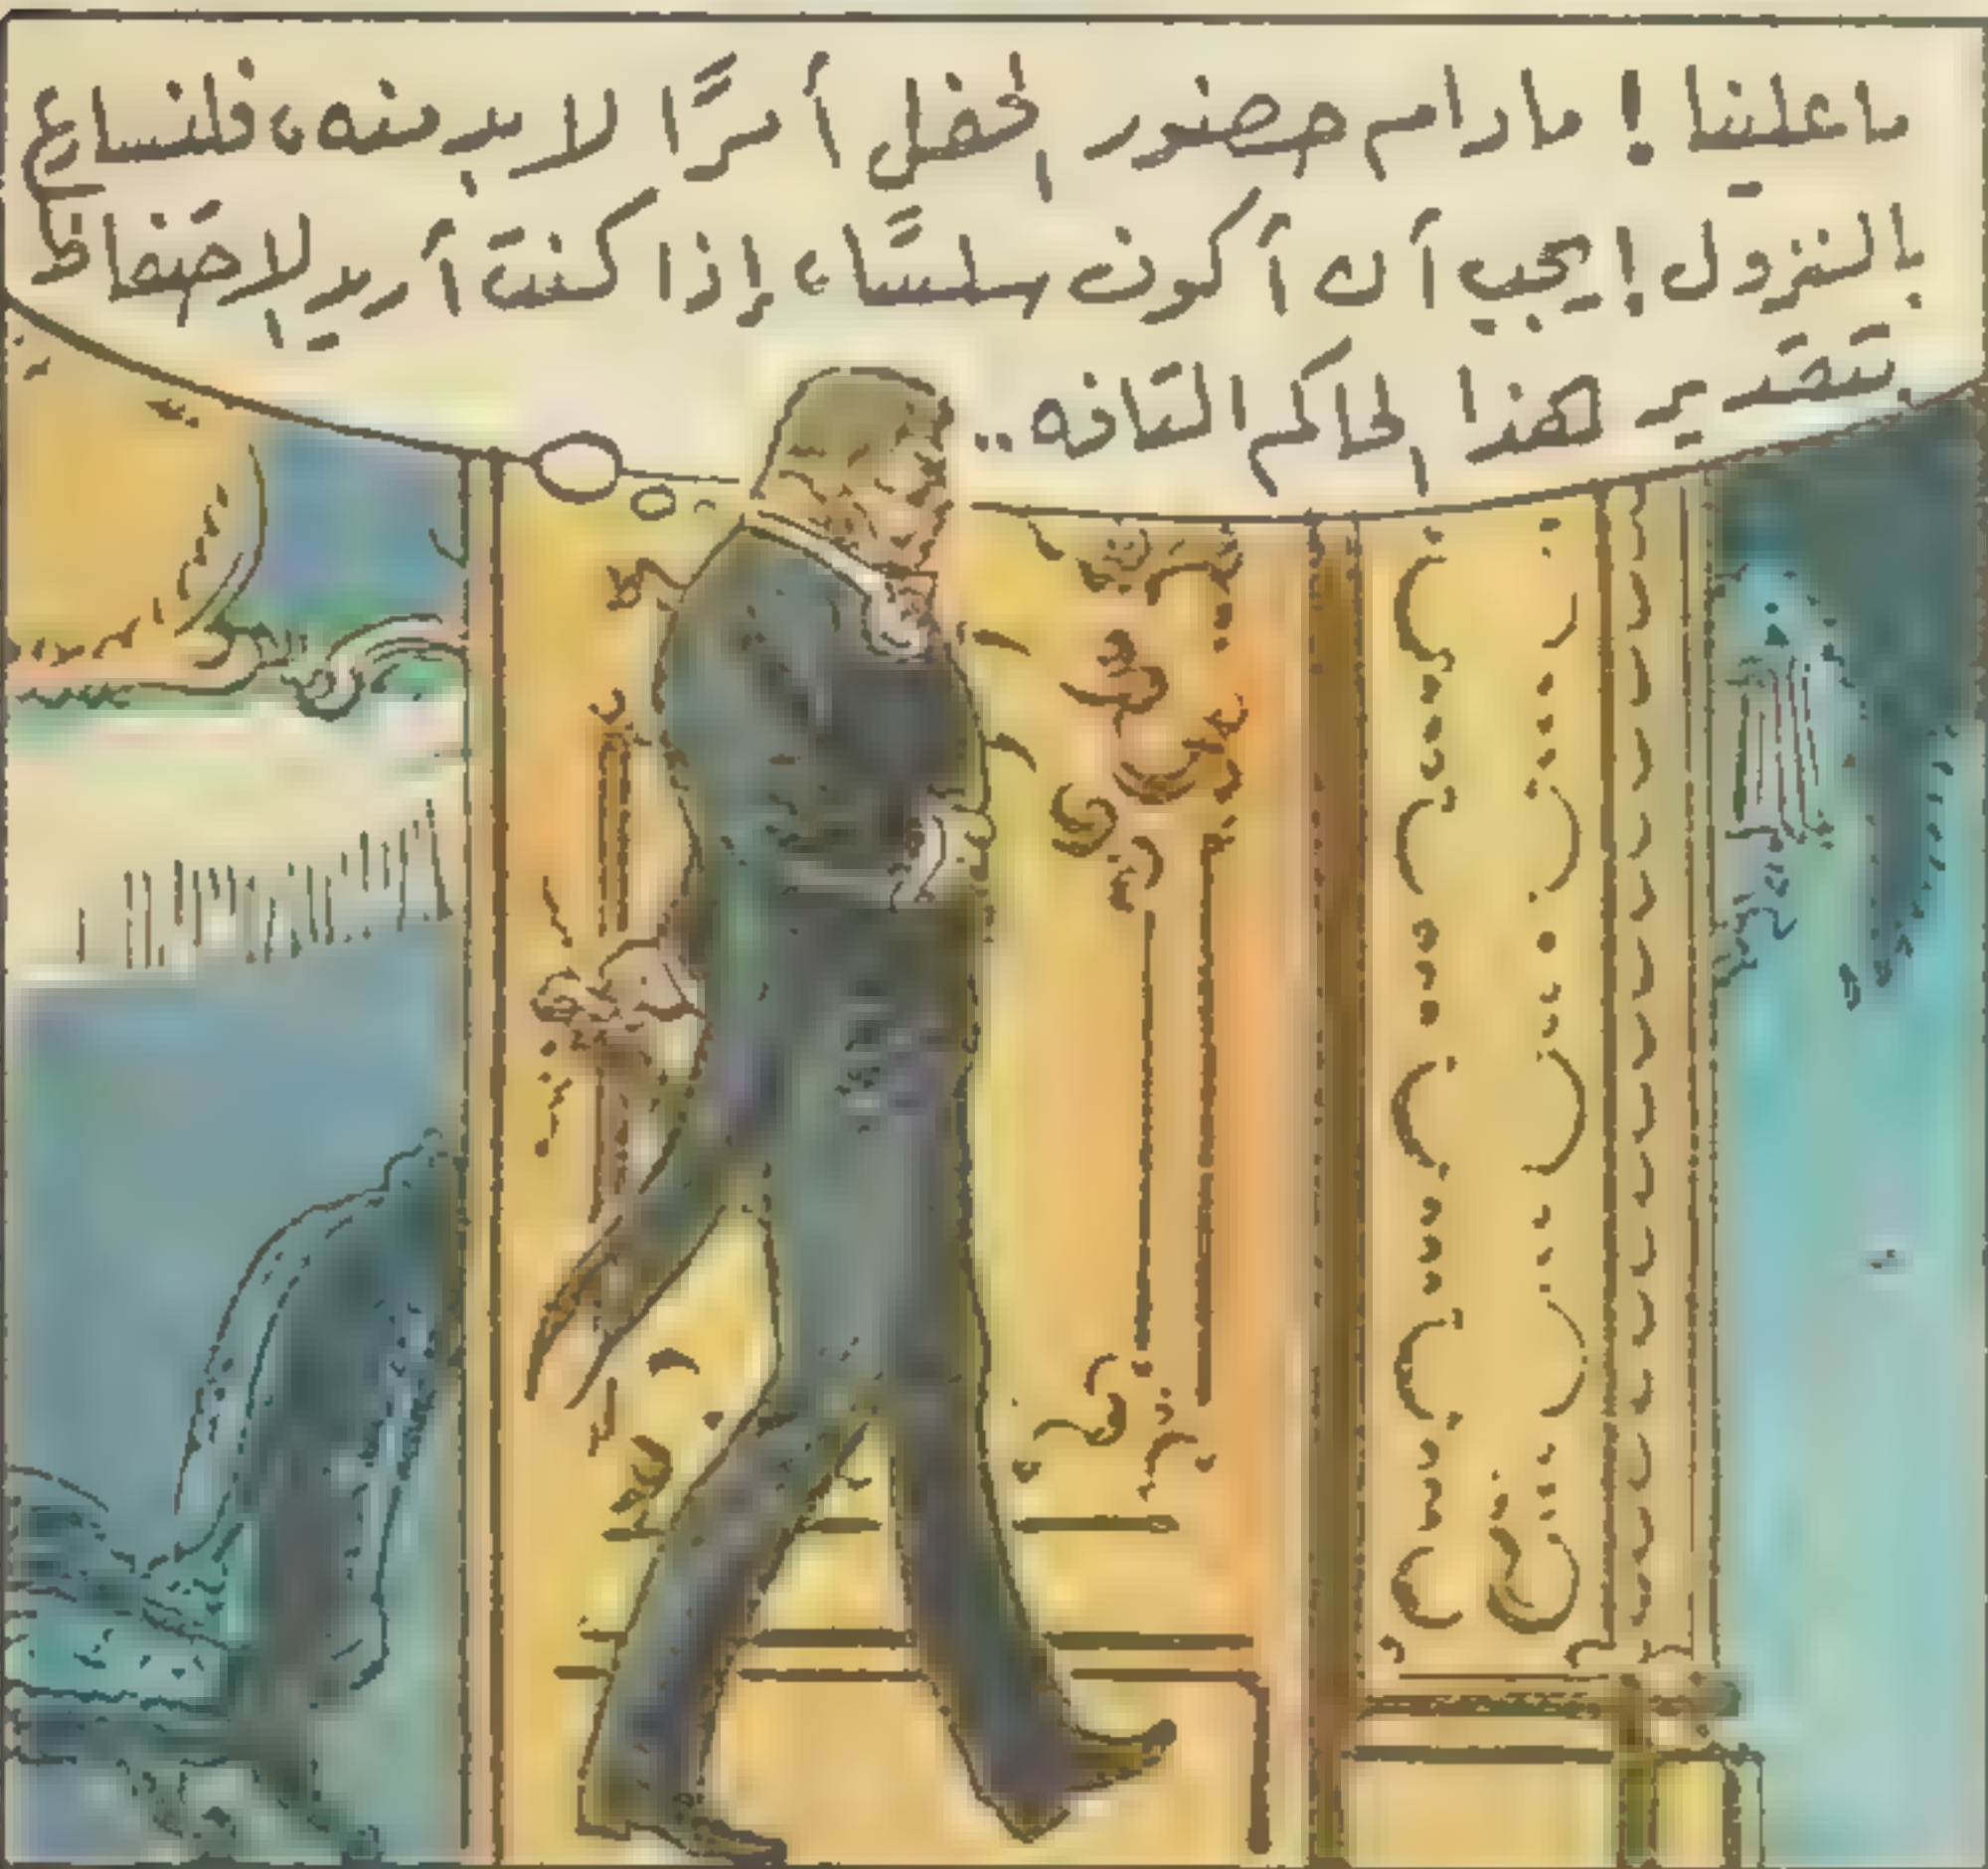 ما علينا ! ما دام حضور الحفل أمرًا لا بد منه، فلنسارع
بالنزول ! يجب أن أكون سلسًا، إذا كنت أريد الاحتفاظ
بتقدير هذا الحاكم التافه ..